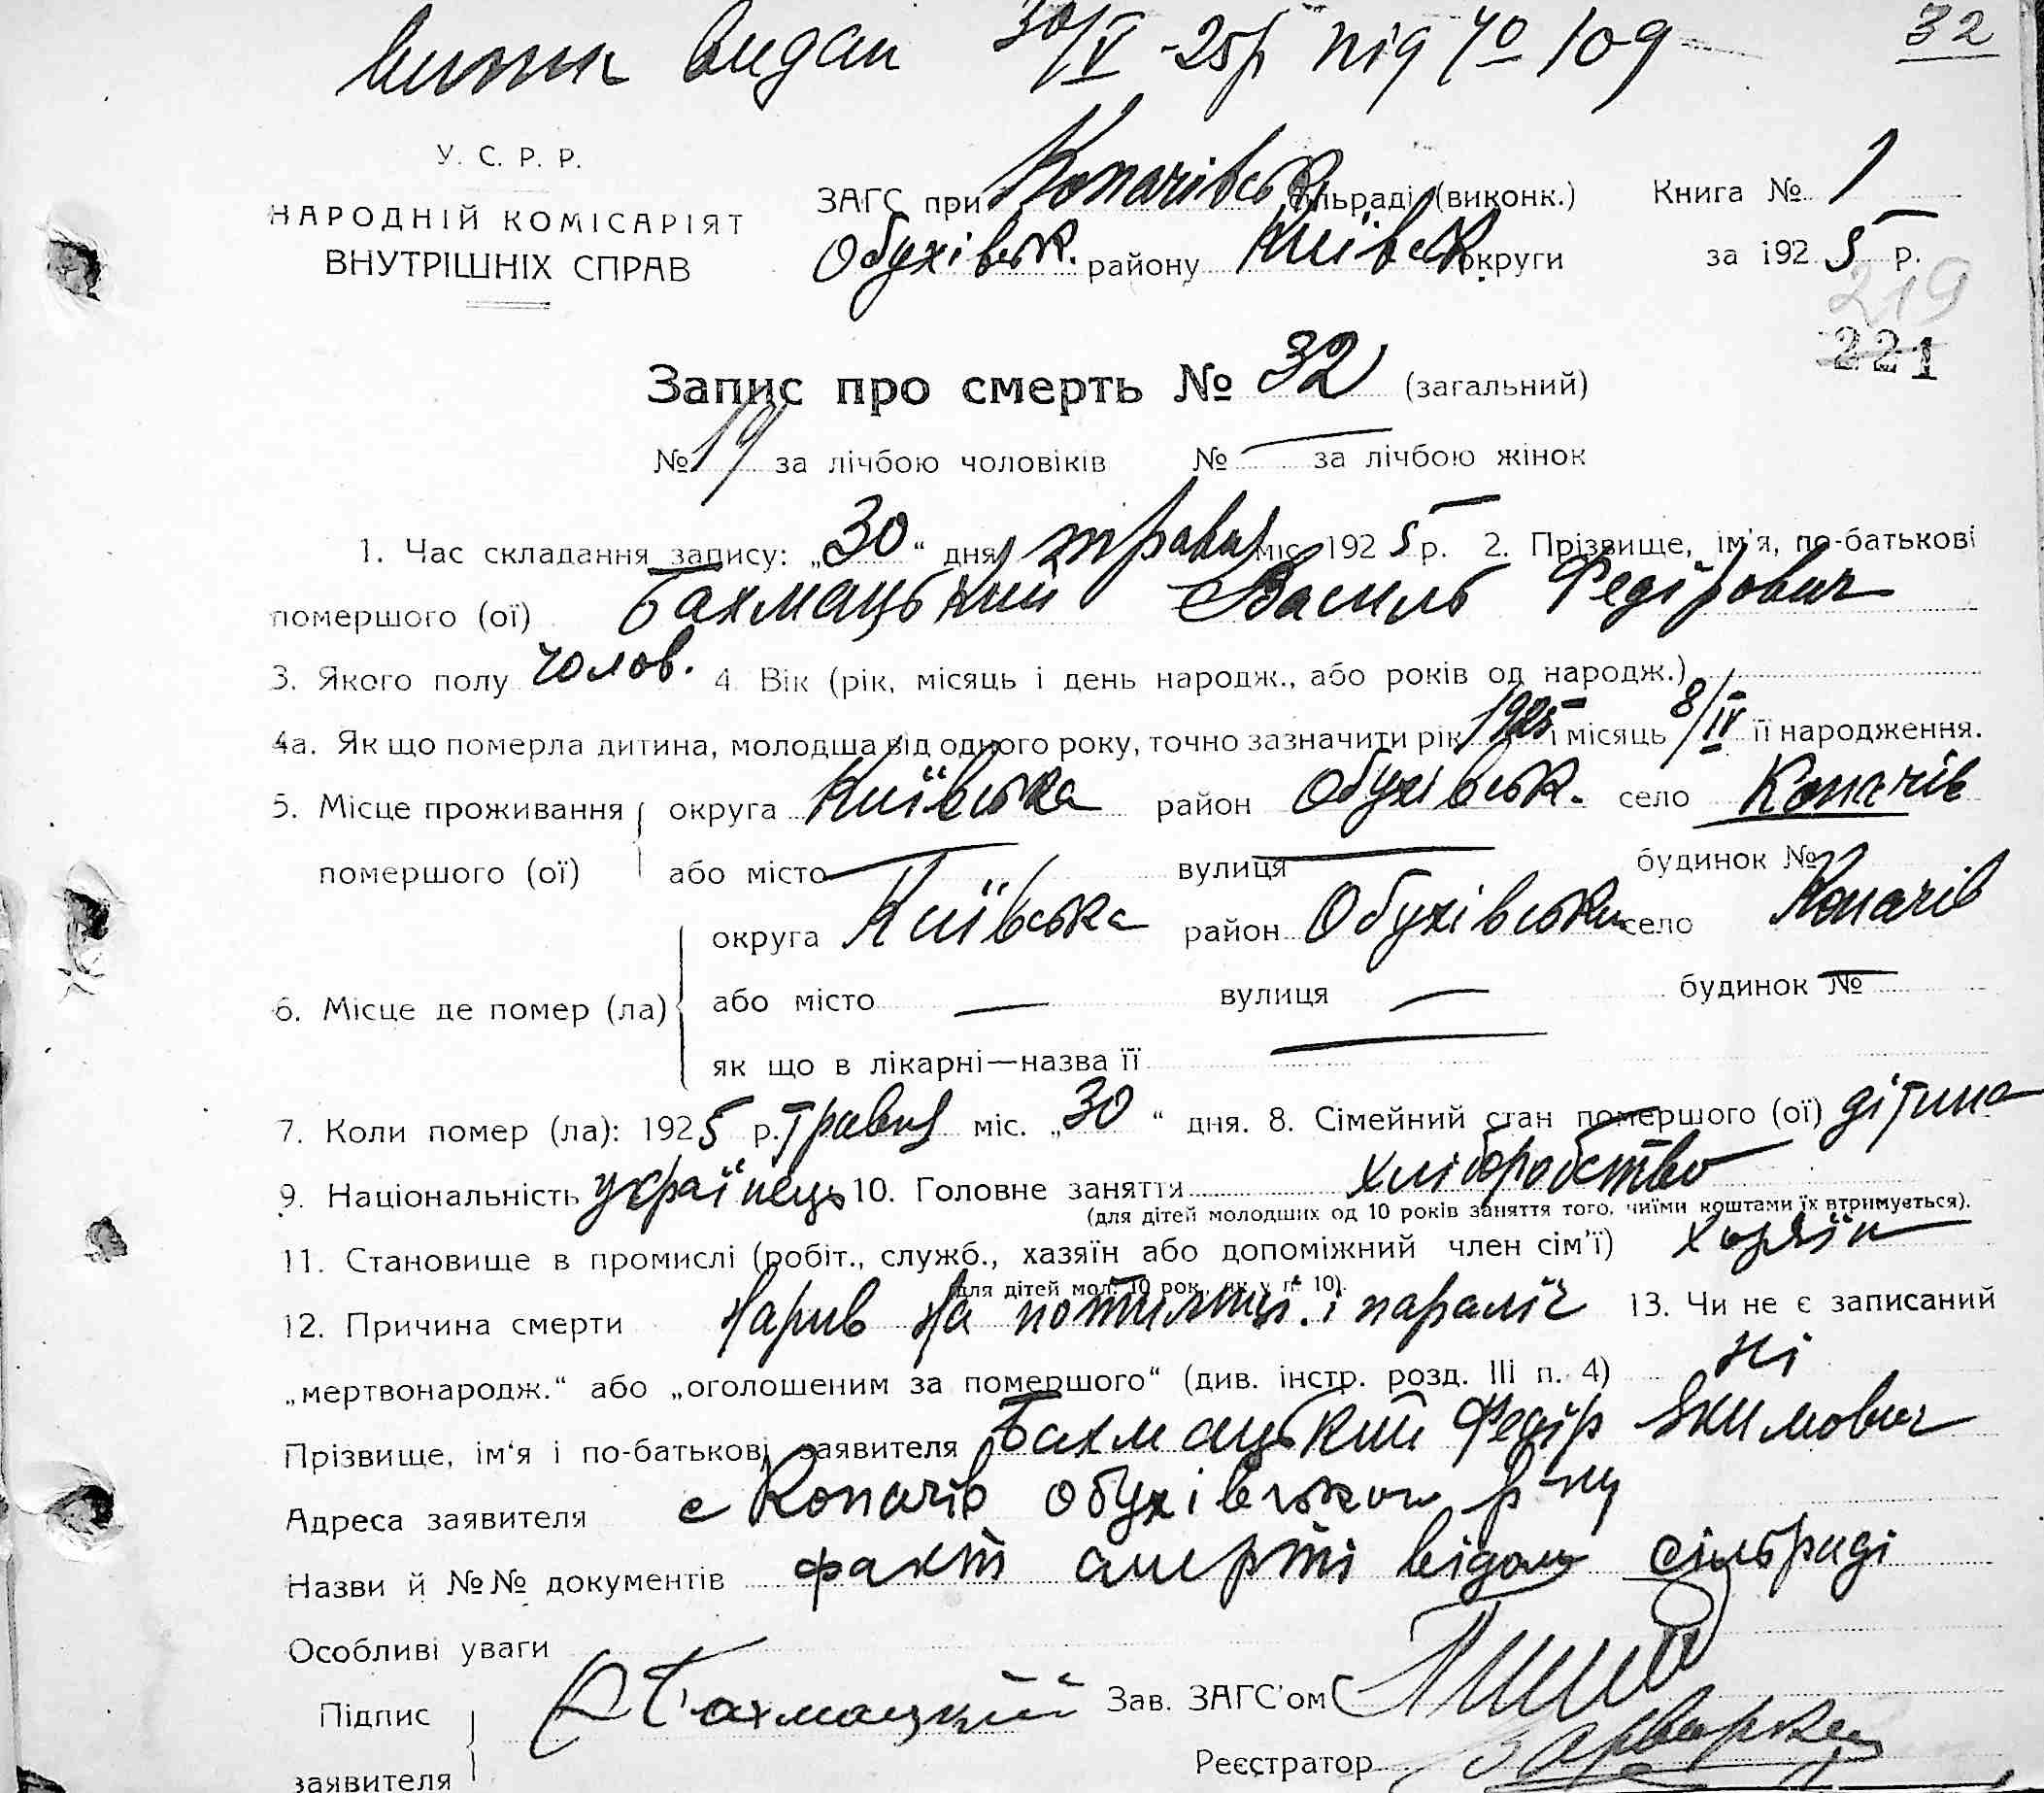 випис видан 30/V -25р під № 109 32
У. С. Р. Р.
НАРОДНІЙ КОМІСАРІЯТ
ВНУТРІШНІХ СПРАВ
ЗАГС при Копачівськ сільраді (виконк.) Книга № 1
Обухівськ. району Київськ. округи за 1925 р.
219
221
Запис про смерть № 32 (загальний)
№ 19 за лічбою чоловіків № — за лічбою жінок
1. Час складання запису: „30“ дня травня міс. 1925 р. 2. Прізвище, ім'я, по-батькові
помершого (ої) Бахмацький Василь Федірович
3. Якого полу чолов. 4. Вік (рік, місяць і день народж., або років од народж.)
4а. Як що померла дитина, молодша від одного року, точно зазначити рік 1925 і місяць 8/IV її народження.
5. Місце проживання округа Київська район Обухівськ. село Копачів
помершого (ої) або місто — вулиця — будинок №
округа Київська район Обухівськи село Копачів
6. Місце де помер (ла) або місто — вулиця — будинок № —
як що в лікарні—назва її —
7. Коли помер (ла): 1925 р. травня міс. „30“ дня. 8. Сімейний стан помершого (ої) дітина
9. Національність українець 10. Головне заняття хліборобство
(для дітей молодших од 10 років заняття того, чиїми коштами їх втримується).
11. Становище в промислі (робіт., служб., хазяїн або допоміжний член сім'ї) хазяїн
(для дітей мол. 10 рок., як у п. 10).
12. Причина смерти Нарив на потилиці і параліч 13. Чи не є записаний
„мертвонародж.“ або „оголошеним за помершого“ (див. інстр. розд. III п. 4) ні
Прізвище, ім'я і по-батькові заявителя Бахмацький Федір Якимович
Адреса заявителя с Копачів Обухівського р-ну
Назви й №№ документів факт смерті відом сільраді
Особливі уваги
Підпис Бахмацкий Зав. ЗАГС'ом
заявителя Реєстратор